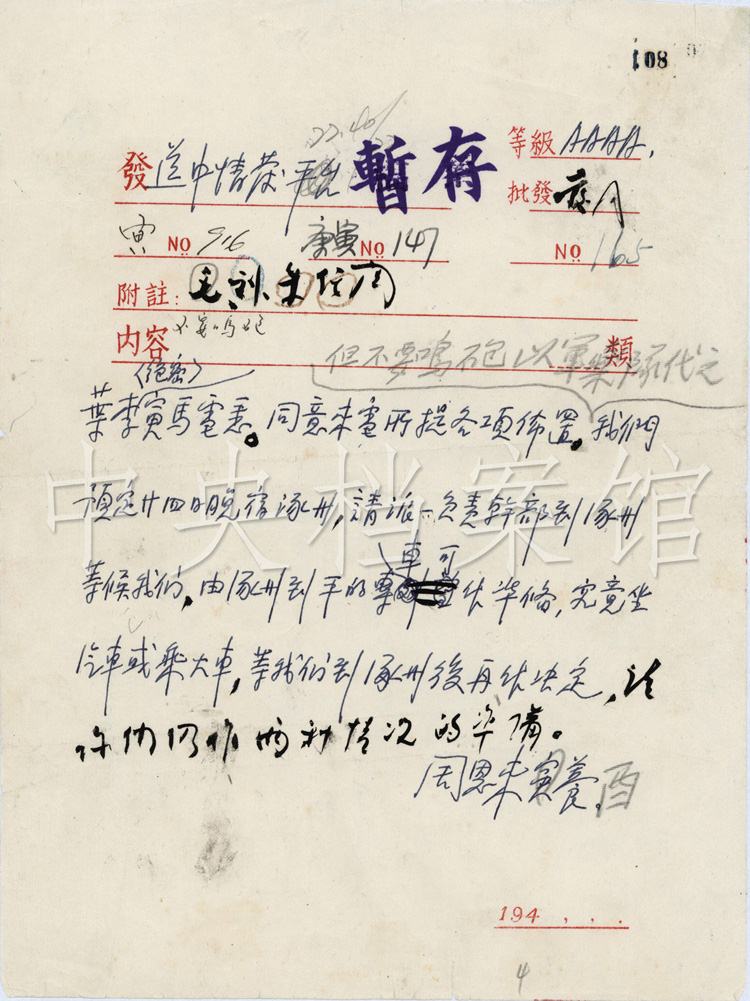 108
22.40/
暫存
等級 AAAA.
發
批發
寅 NO 926 康寅 NO 147 NO 165
附註: 毛劉朱任周
不要鳴炮
内容 類
但不要鳴砲以軍樂隊代之
(絕密)
葉李寅馬電悉。同意來電所提各項佈置,我們
預定廿四日晚宿涿州,請派一負責幹部到涿州
等候我們,由涿州到平的車可作準備,究竟坐
汽車或乘火車,等我們到涿州後再作決定,請
你們仍作兩種情况的準備。
周恩來寅養.酉
194 , . .
4
中央档案馆